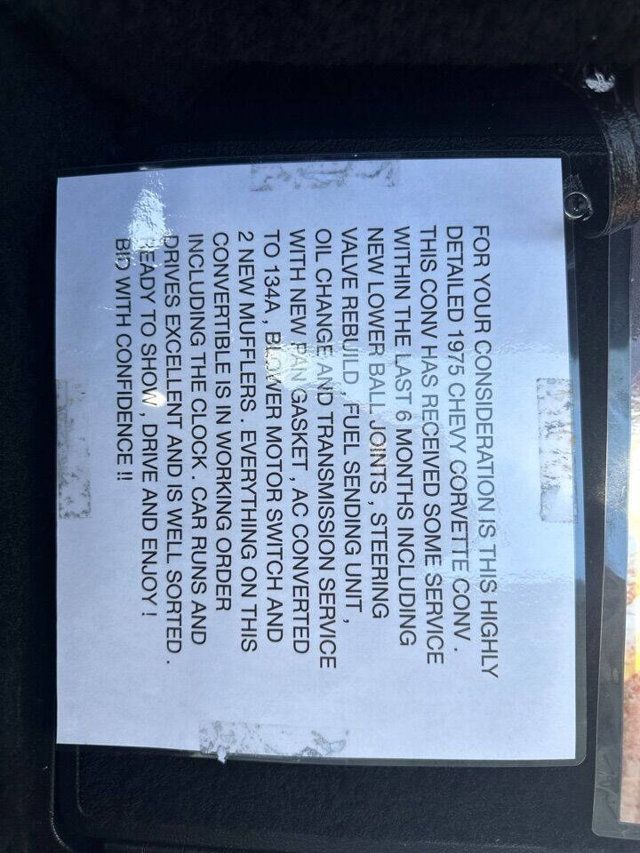 FOR YOUR CONSIDERATION IS THIS HIGHLY
DETAILED 1975 CHEVY CORVETTE CONV .
THIS CONV HAS RECEIVED SOME SERVICE
WITHIN THE LAST 6 MONTHS INCLUDING
NEW LOWER BALL JOINTS , STEERING
VALVE REBUILD , FUEL SENDING UNIT ,
OIL CHANGE AND TRANSMISSION SERVICE
WITH NEW PAN GASKET , AC CONVERTED
TO 134A , BLOWER MOTOR SWITCH AND
2 NEW MUFFLERS . EVERYTHING ON THIS
CONVERTIBLE IS IN WORKING ORDER
INCLUDING THE CLOCK . CAR RUNS AND
DRIVES EXCELLENT AND IS WELL SORTED .
READY TO SHOW , DRIVE AND ENJOY !
BID WITH CONFIDENCE !!